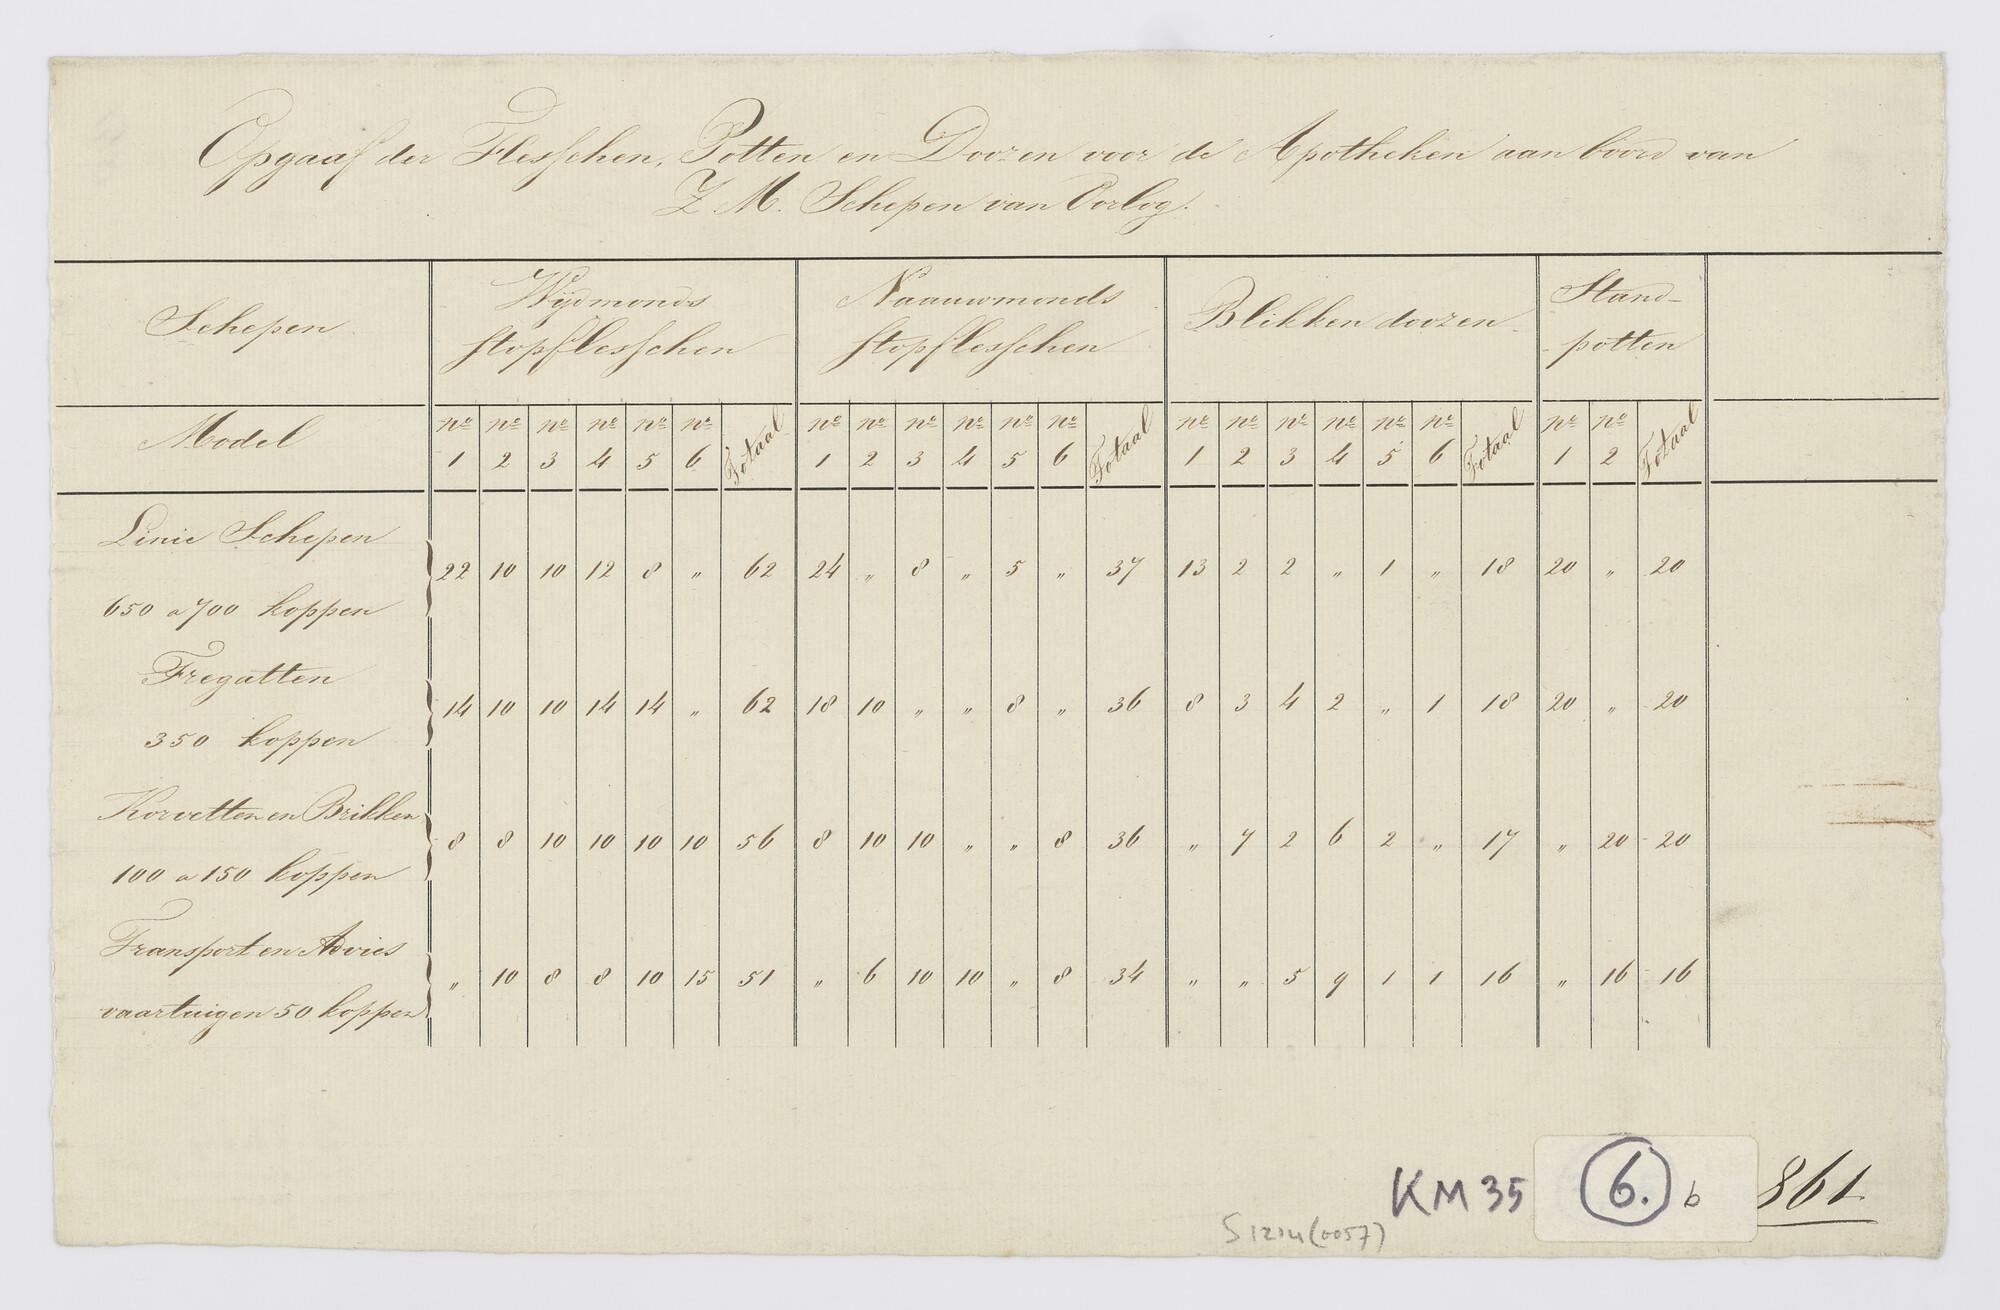 Opgaaf der Flesschen, Potten en Doozen voor de Apotheken aan boord van
Z. M. Schepen van Oorlog.
Schepen Wijdmonds stopflesschen Naauwmonds stopflesschen Blikken doozen Stand-potten
Model nº 1 nº 2 nº 3 nº 4 nº 5 nº 6 Totaal nº 1 nº 2 nº 3 nº 4 nº 5 nº 6 Totaal nº 1 nº 2 nº 3 nº 4 nº 5 nº 6 Totaal nº 1 nº 2 Totaal
Linie Schepen
650 a 700 koppen 22 10 10 12 8 „ 62 24 „ 8 „ 5 „ 37 13 2 2 „ 1 „ 18 20 „ 20
Fregatten
350 koppen 14 10 10 14 14 „ 62 18 10 „ „ 8 „ 36 8 3 4 2 „ 1 18 20 „ 20
Korvetten en Brikken
100 a 150 koppen 8 8 10 10 10 10 56 8 10 10 „ „ 8 36 „ 7 2 6 2 „ 17 „ 20 20
Transport en Advies
vaartuigen 50 koppen „ 10 8 8 10 15 51 „ 6 10 10 „ 8 34 „ „ 5 9 1 1 16 „ 16 16
KM 35 6. b 861
S 1214 (0057)